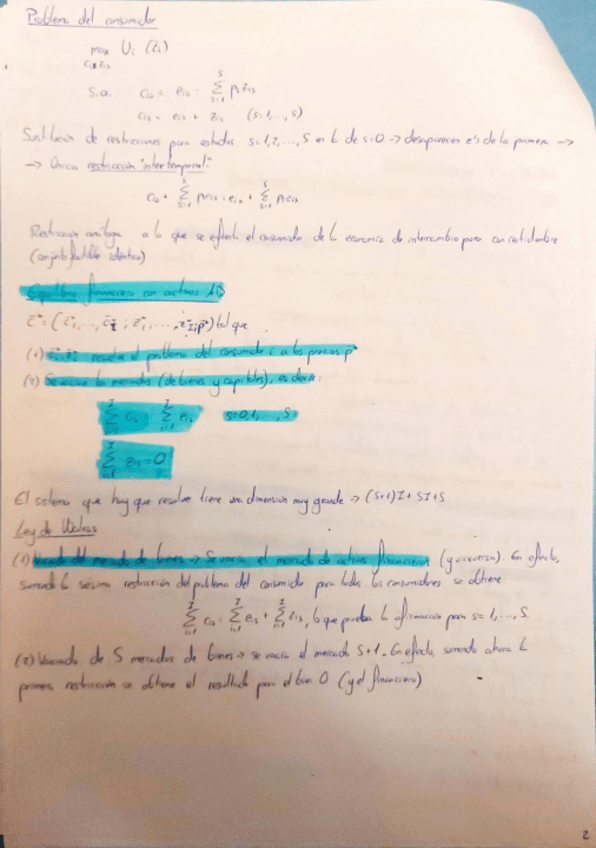 Problema del consumidor
max Ui (c̄i)
ci, zis
s.a. ci0 = ei0 - Σ ps zis
cis = eis + zis (s=1,...,S)
Sustitución de restricciones para estados s=1,2,...,S en la de s=0 → desaparecen z's de la primera →
→ Única restricción "intertemporal":
ci0 + Σ ps cis = ei0 + Σ ps eis
Restricción análoga a la que se enfrenta el consumidor de la economía de intercambio pura con certidumbre
(conjunto factible idéntico)
Equilibrio financiero con activos AD
tal que
(1) resuelve el problema del consumidor i a los precios p*
(2) Se vacían los mercados (de bienes y capitales), es decir:
Σ cis = Σ eis s=0,1,...,S
Σ zis = 0
El sistema que hay que resolver tiene una dimensión muy grande → (S+1)I + SI + S
Ley de Walras
(1) Vaciado del mercado de bienes → Se vacía el mercado de activos financieros (y viceversa). En efecto,
sumando la sésima restricción del problema del consumidor para todos los consumidores se obtiene:
Σ cis = Σ eis + Σ zis, lo que prueba la afirmación para s=1,...,S
(2) Vaciado de S mercados de bienes → se vacía el mercado S+1. En efecto, sumando ahora la
primera restricción se obtiene el resultado para el bien 0 (y el financiero)
2